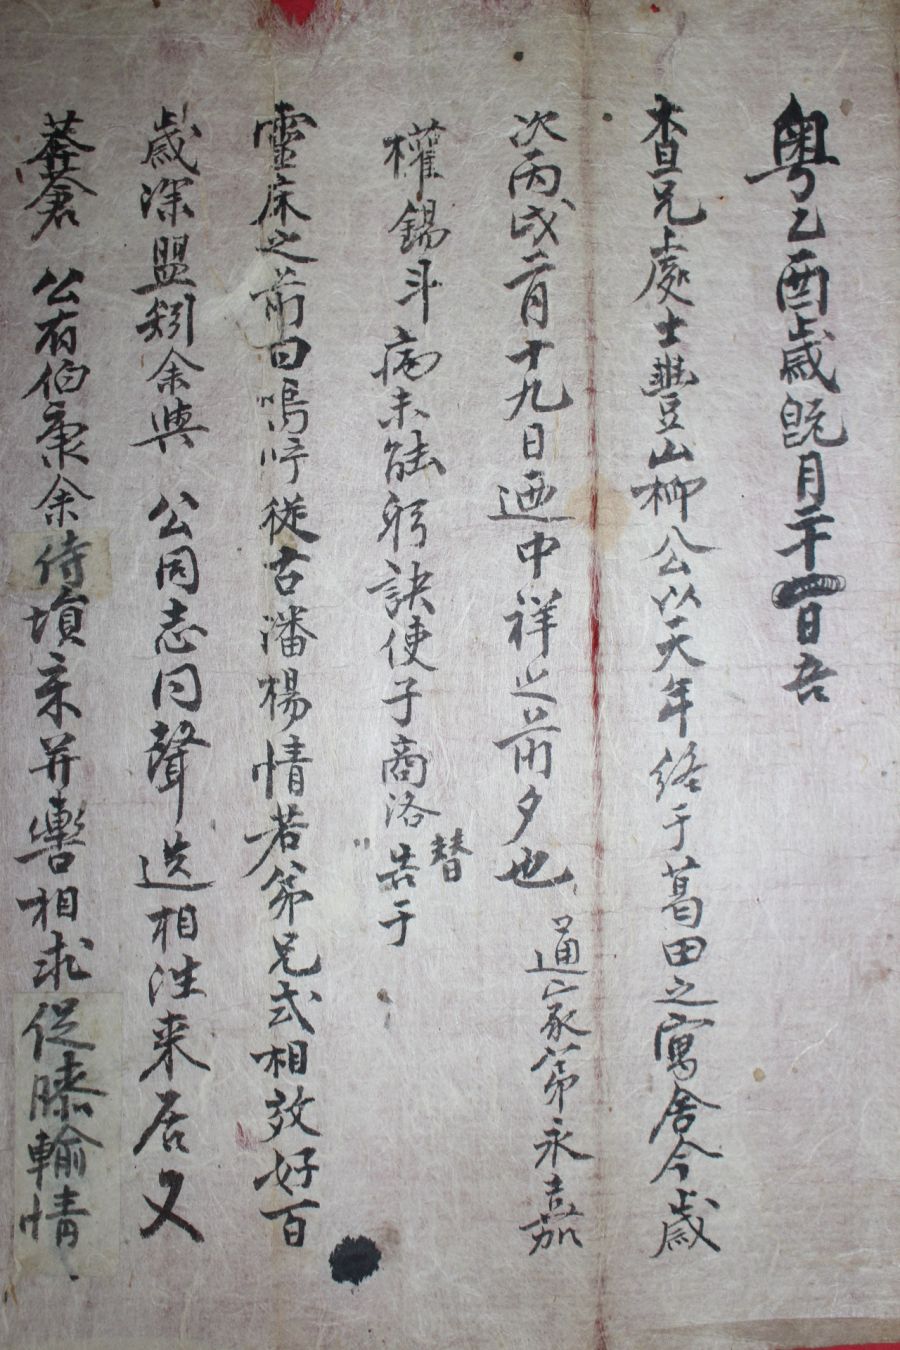 粤乙酉歲旣月二十一日吾
査兄處士豊山柳公以天年終于葛田之寓舍今歲
次丙戌二月十九日廼中祥之前夕也 通家弟永嘉
權錫斗病未能躬訣使子商洛替告于
靈床之前曰嗚呼從古潘楊情若弟兄式相效好百
歲深盟矧余與 公同志同聲迭相往來居又
莽蒼 公有伯氣余侍墳衆幷轡相求促膝輸情